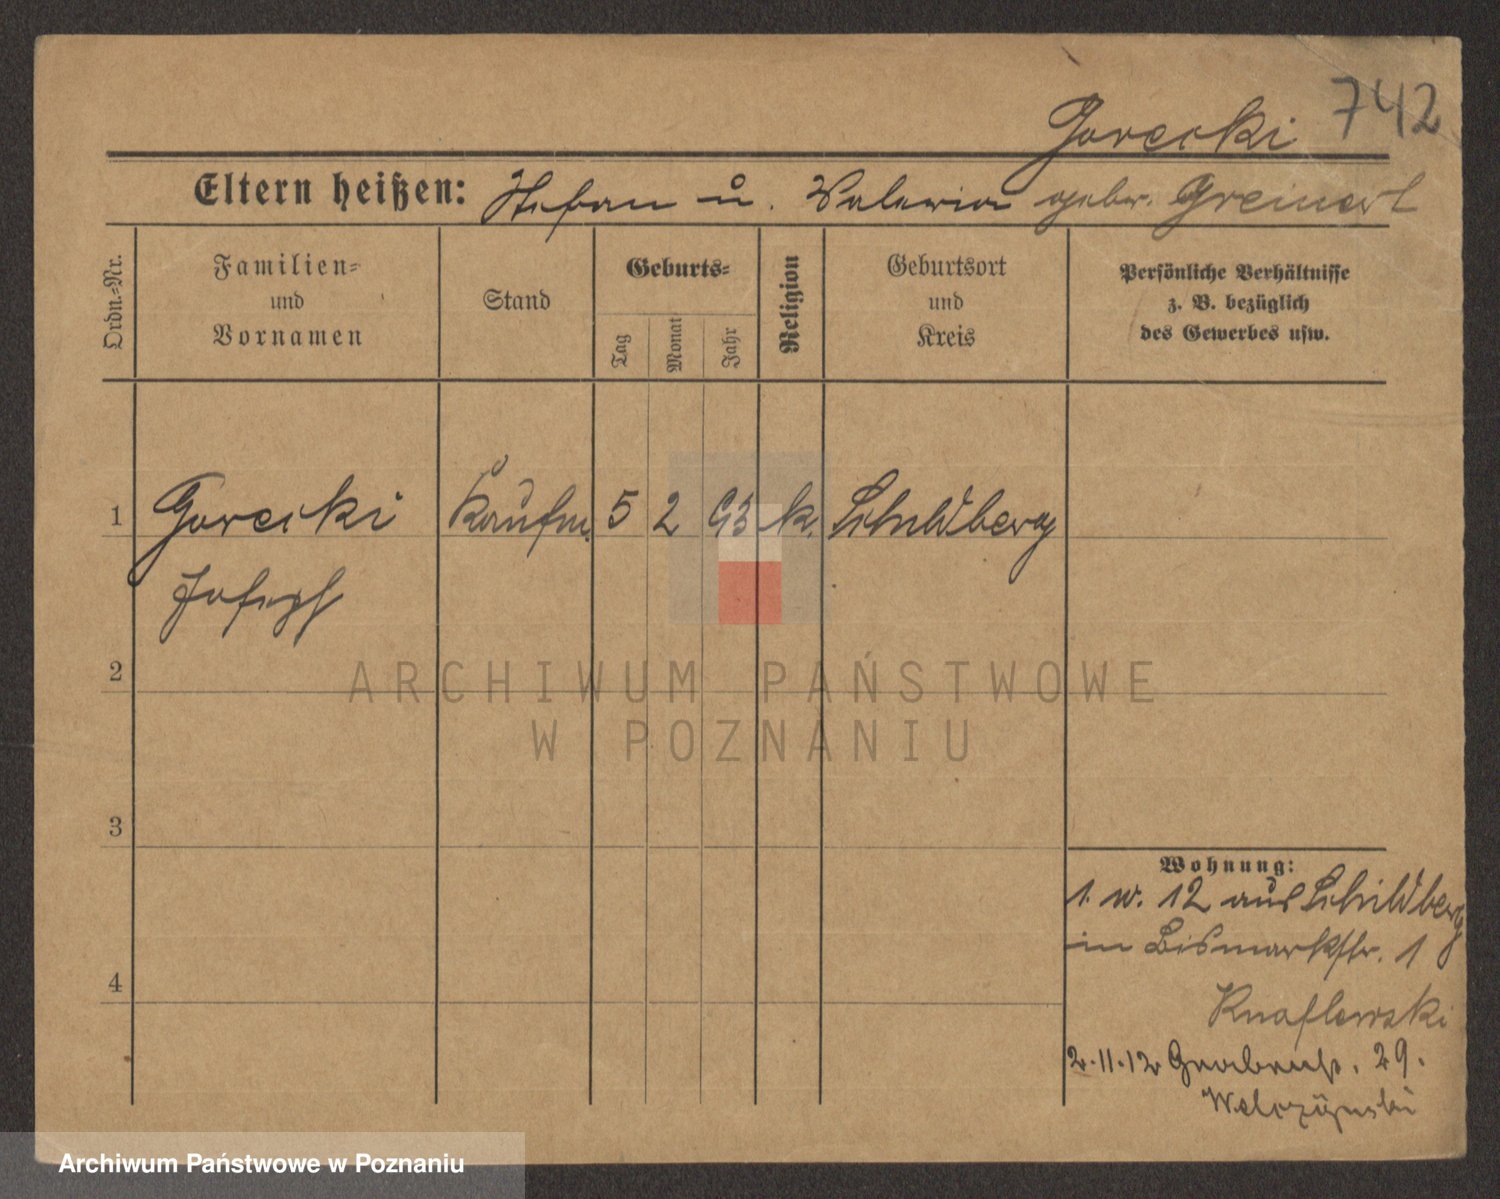 742
Gorecki
Eltern heißen: Stefan u. Valeria gebr. Greinert
Ordn.-Nr.
Familien-
und
Vornamen
Stand
Geburts-
Tag
Monat
Jahr
Religion
Geburtsort
und
Kreis
Persönliche Verhältnisse
z. B. bezüglich
des Gewerbes usw.
1 Gorecki Kaufm. 5 2 93 k. Schildberg
Josef
ARCHIWUM PAŃSTWOWE
W POZNANIU
2
3
4
Wohnung:
1. 12 aus Schildberg
in Bismarkstr. 1
Knaflewski
2.11.12 Grabenstr. 29.
Walczÿnski
Archiwum Państwowe w Poznaniu